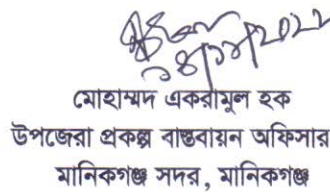 মোহাম্মদ একরামুল হক
উপজেরা প্রকল্প বাস্তবায়ন অফিসার
মানিকগঞ্জ সদর, মানিকগঞ্জ